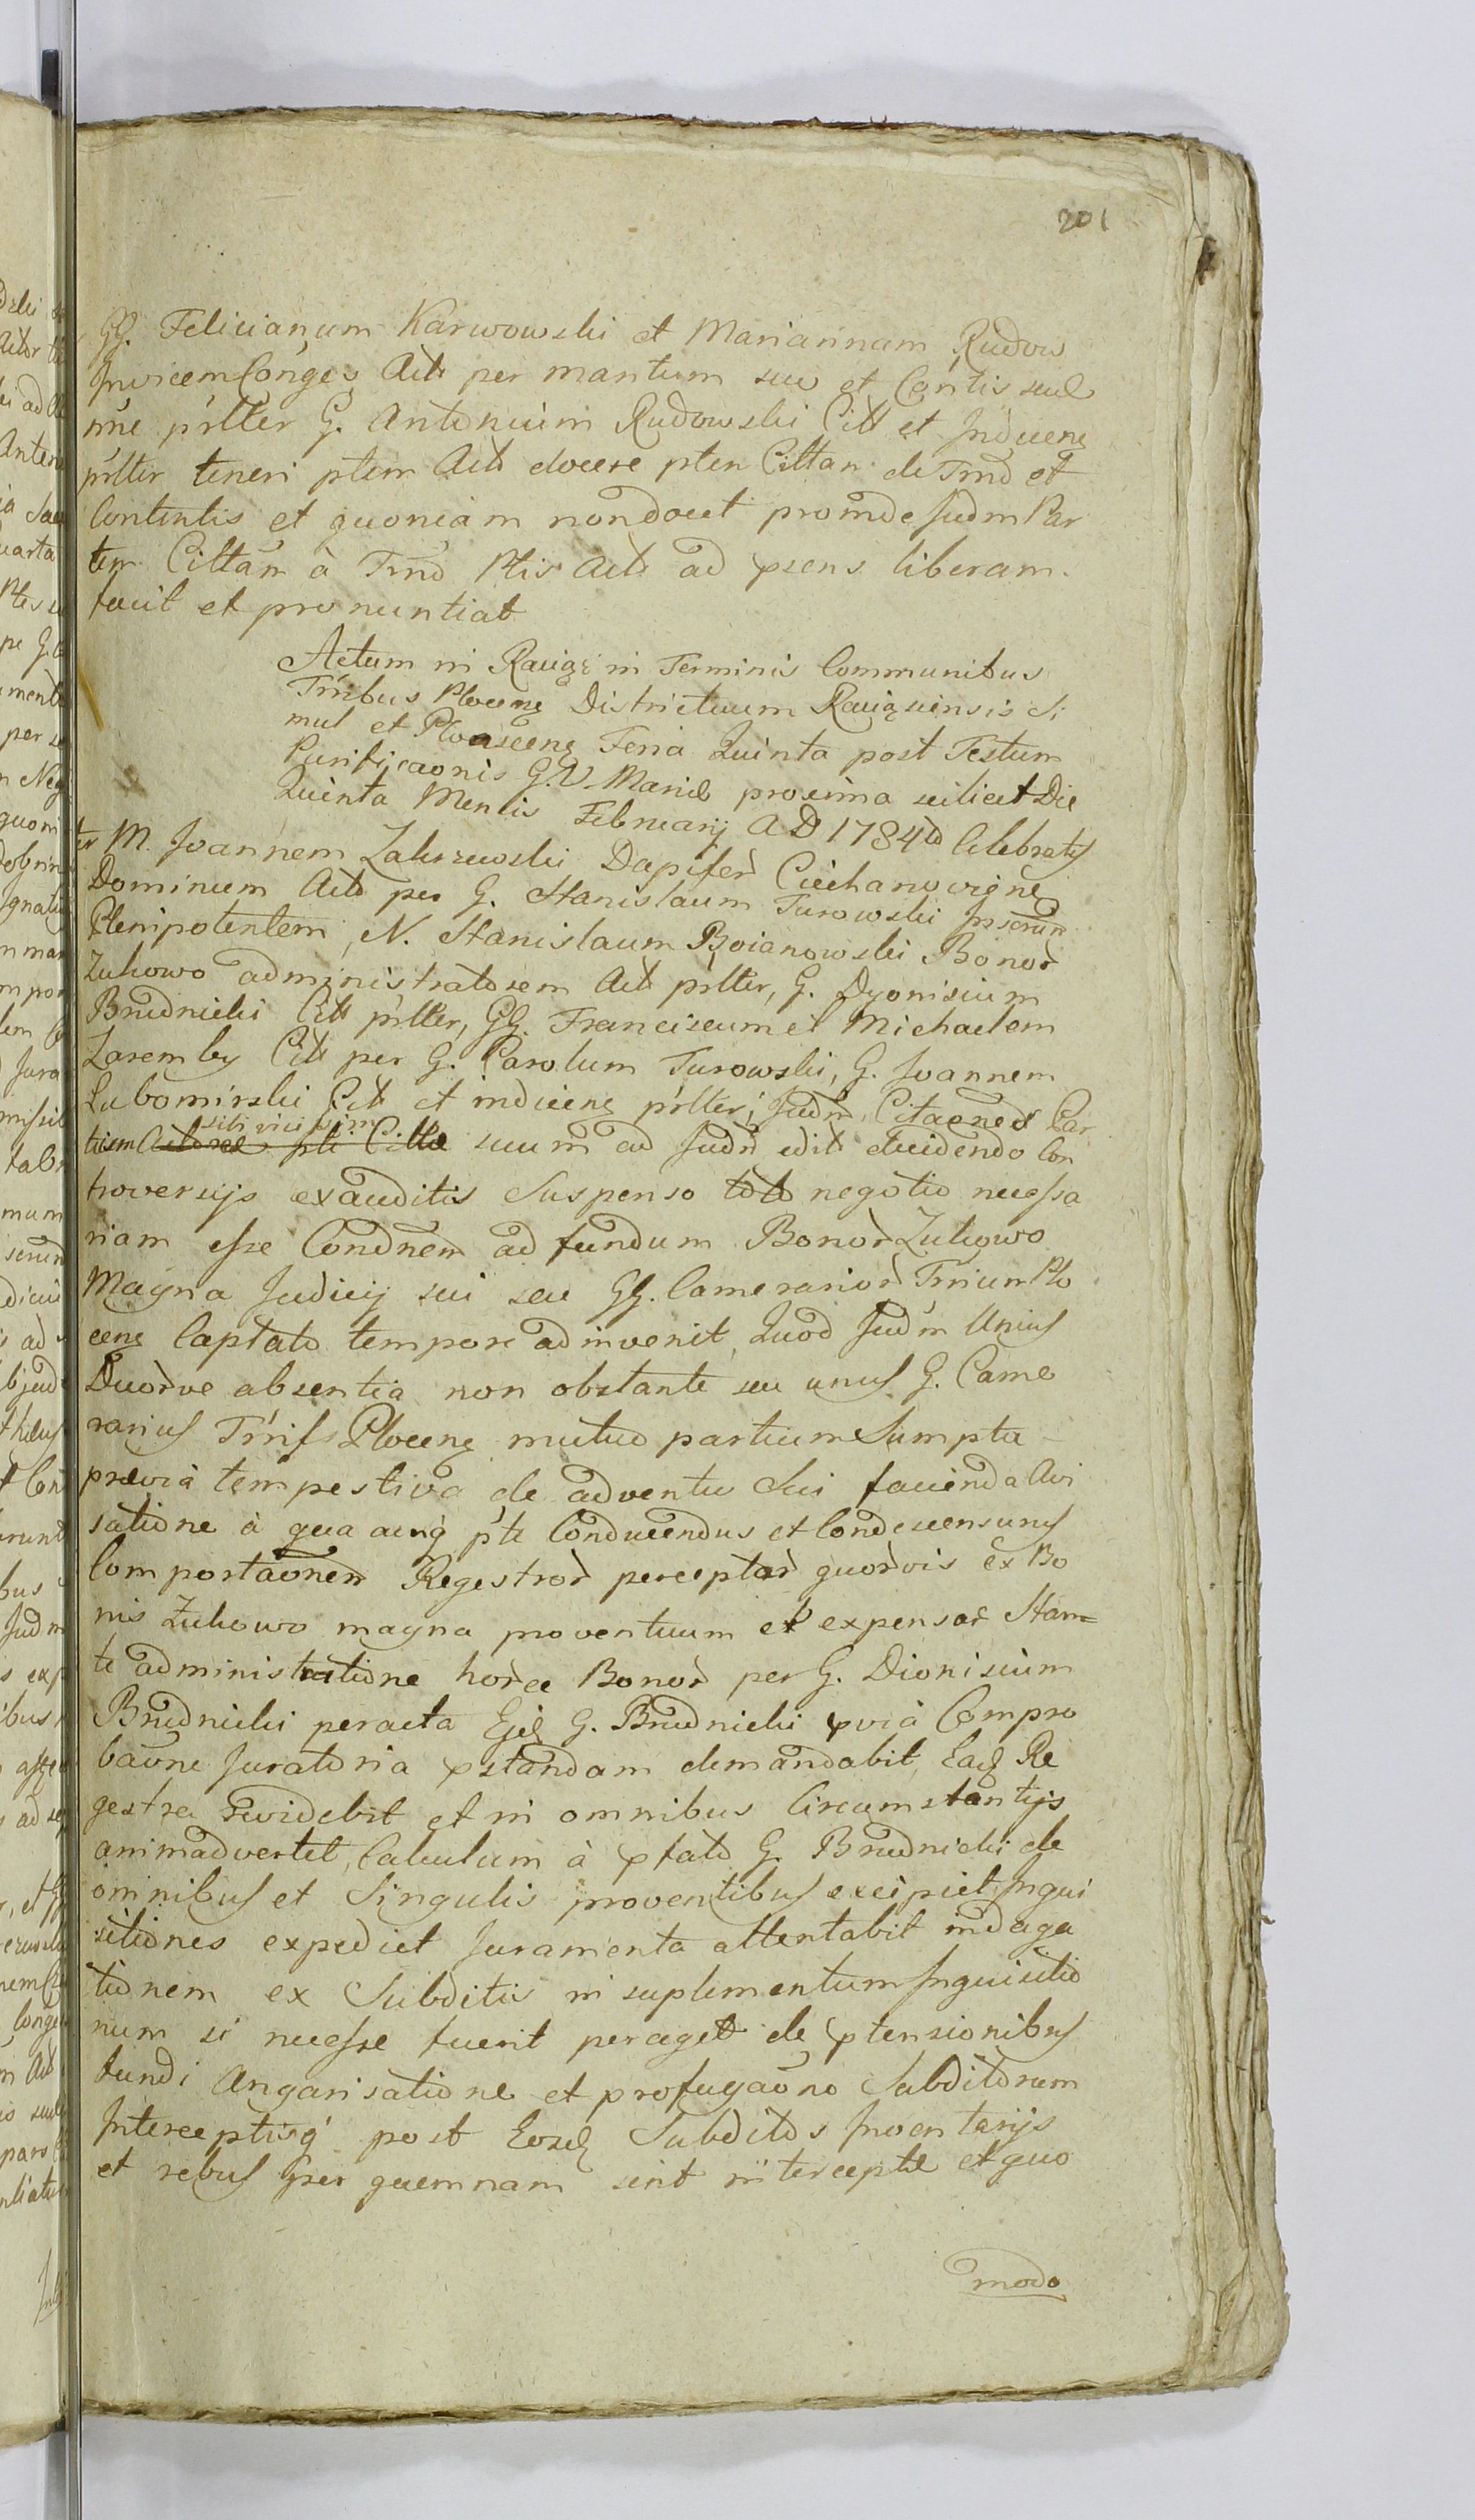 201
GG. Felicianum Karwowski et Mariannam Rudow
Invicem Conges Act per mantum suu et Contis seul
nne pntter G. Antonium Rudowski Citt et Inducene
pntter teneri ptem Act docere pten Cittan de Trnd et
Contentis et quoniam non docet proinde Judm Par
tem Cittam à Trnd Ptis Act ad psens liberam
facit et pronuntiat
Actum in Raciąż in Terminis Communibus
Trribus Plocens Districtuum Raciązsiensis Si
mul et Plocscens Feria Quinta post Festum
Purificaonis G.V. Mariæ proxima scilicet Die
Quinta Mensis Februarij A D 1784to Celebratis
ter M. Joannem Zakrzewski Dapifer Ciechanoviens
Dominum Act per G. Stanislaum Turowski Inserun
Plenipotentem, N. Stanislaum Boianowski Bonor
Zukowo administratorem Act pntter, G. Dyonisium
Brudnicki Citt pntter, GG. Franciscum et Michaelem
Zaremby Citt per G. Carolum Turowski, G. Joannem
Lubomirski Citt et inducens pntter, Judm, Citaoned Par
sibi vicissim
tium Actorea pte Citta suum ad Judm edit decidendo Con
troversijs exauditis Suspenso toto negotio necessa
riam esse Condnem ad fundum Bonor Zukowo
Magna Judicij sui seu GG. Camerarior Trrium Plo
cens Captato tempore adinvenit, Quod Judm Unius
Duorve absentia non obstante seu unus G. Came
rarius Trris Plocens mutuo partium Sumpta
prævia tempestiva de adventu Sui facienda Avi
satione à qua cunq pte Conducendus et Condescensurus
Comportaonem Regestror perceptar quorvis ex Bo
nis Zukowo magna proventuum et expensar Stan=
te administratione horce Bonor per G. Dionisium
Brudnicki peracta Ejd G. Brudnicki pvià Compro
baone Juratoria pstandam demandabit, Eaq Re
gestra revidebit et in omnibus Circumstantijs
animadvertet, Calculum à pfato G. Brudnicki de
omnibus et Singulis proventibus excipiet Inqui
sitiones expediet Juramenta attentabit indaga
tionem ex Subditis in suplementum Inquisitio
num si necesse fuerit peraget de ptensionibus
fundi Angarisatione et profugaone Subditorum
Interceptisq post Eosd Subditos Inventarijs
et rebus per quemnam sint interceptæ et quo
modo